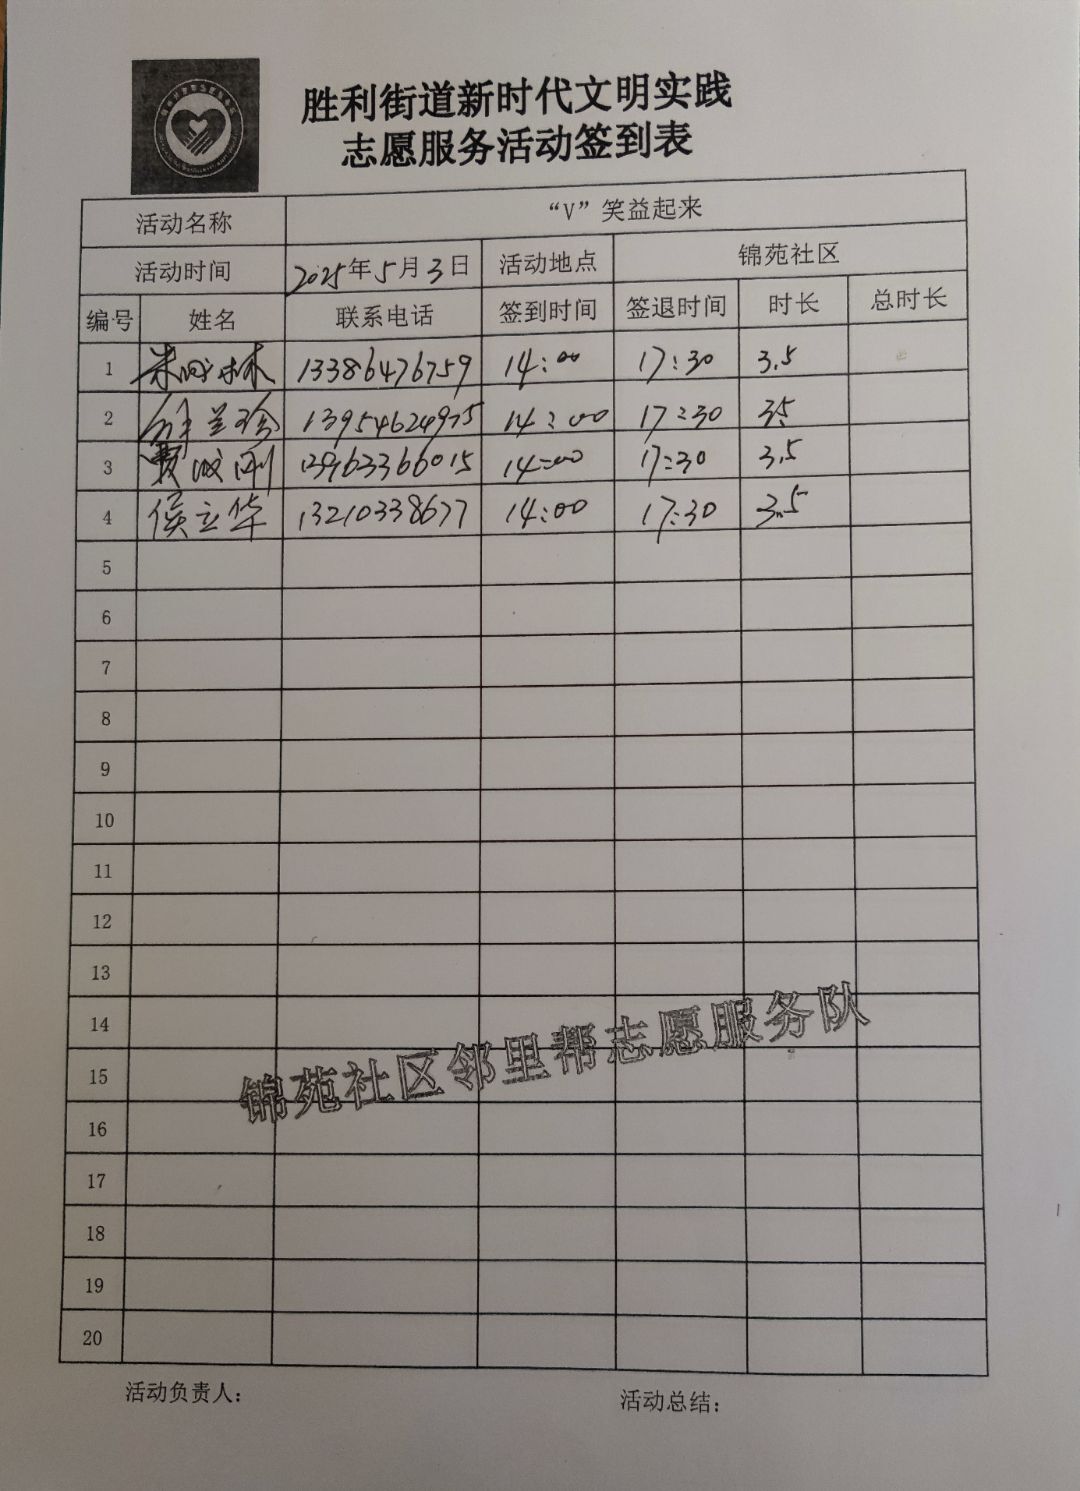 胜利街道新时代文明实践
志愿服务活动签到表
活动名称 “V”笑益起来
活动时间 2025年5月3日 活动地点 锦苑社区
编号 姓名 联系电话 签到时间 签退时间 时长 总时长
1 林 13386476759 14:00 17:30 3.5
2 13954624975 14:00 17:30 35
3 刚 13963366015 14:00 17:30 3.5
4 侯立华 13210338677 14:00 17:30 3.5
5
6
7
8
9
10
11
12
13
14
15
16
17
18
19
20
锦苑社区邻里帮志愿服务队
活动负责人: 活动总结: